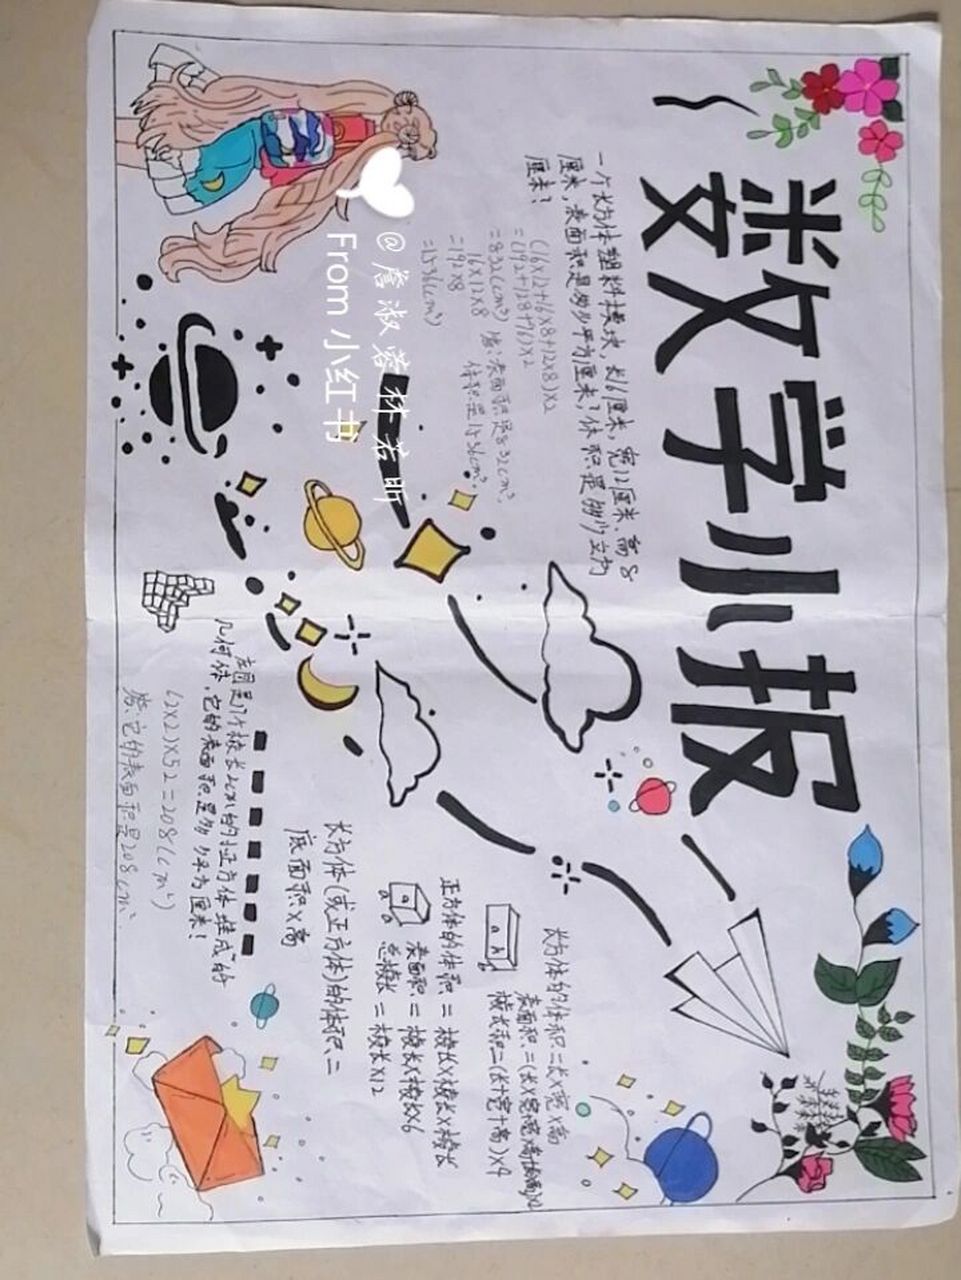 数学小报
一个长方体塑料模块,长16厘米,宽12厘米,高8
厘米,表面积是多少平方厘米?体积是多少立方
厘米?
(16x12+16x8+12x8)x2
=(192+128+96)x2
=832(cm²) 答:表面积是832cm²,
16x12x8 体积是1536cm³。
=192x8
=1536(cm³)
@詹淑蓉 林若昕
From 小红书
长方体的体积=长x宽x高
棱长和=(长+宽+高)x4
a h
正方体的体积=棱长x棱长x棱长
表面积=棱长x棱长x6
总棱长=棱长x12
a
a a
长方体(或正方体)的体积=
底面积x高
左图是几个棱长2cm的小正方体堆成的
几何体,它的表面积是多少平方厘米?
(2x2)x52=208(cm²)
答:它的表面积是208cm²